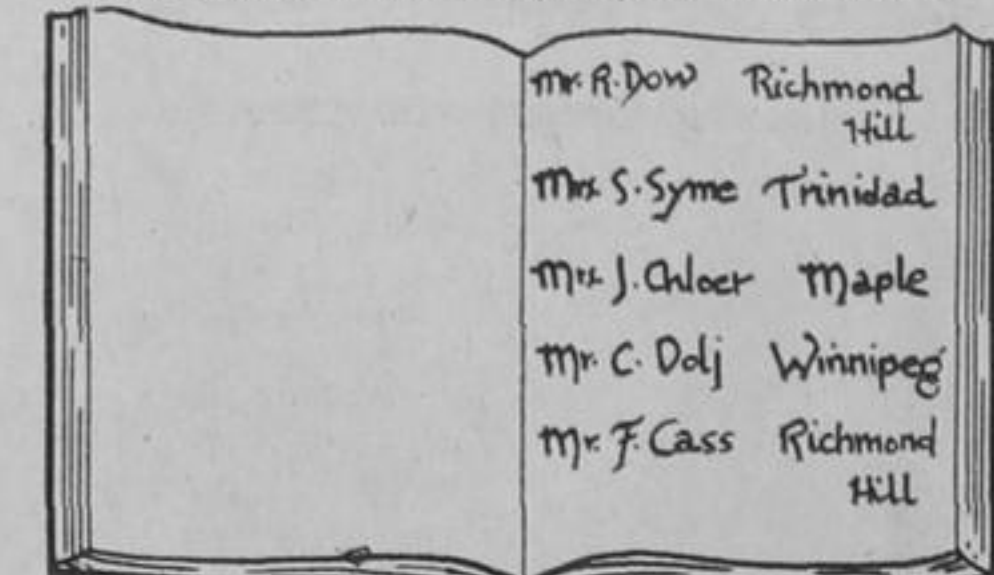 Mr. R. Dow Richmond
Hill
Mrs. S. Syme Trinidad
Mrs. J. Chloer Maple
Mr. C. Dolj Winnipeg
Mr. F. Cass Richmond
Hill